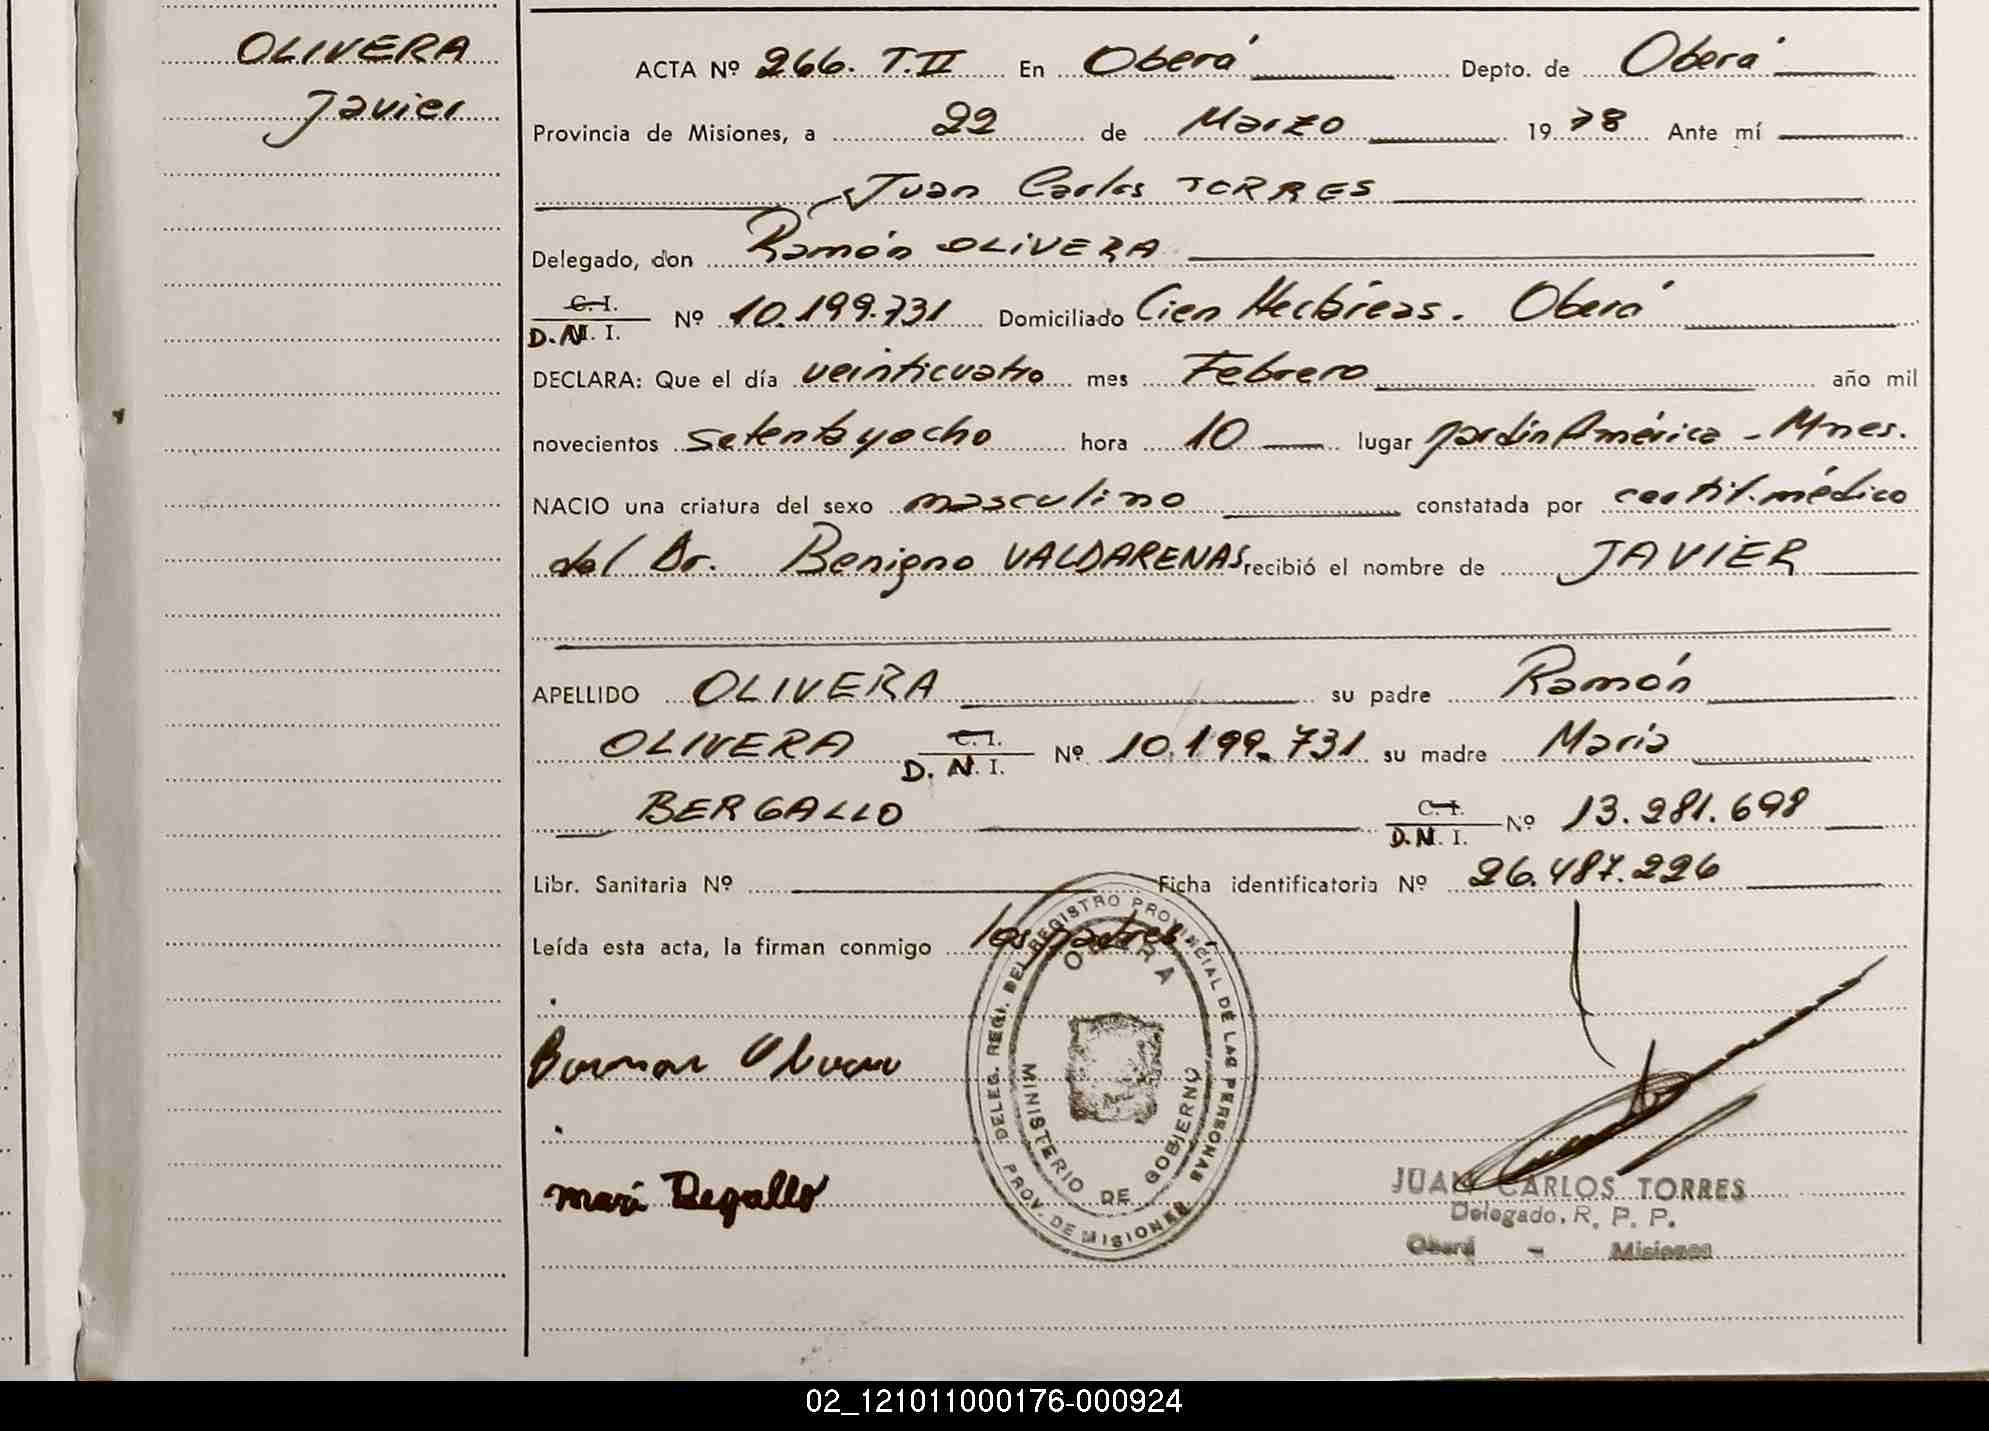 OLIVERA
Javier
ACTA Nº 266. T.II En Oberá Depto. de Oberá
Provincia de Misiones, a 22 de Marzo 1978 Ante mí
Juan Carlos TORRES
Delegado, don Ramón OLIVERA
C. I.
D. N. I. Nº 10.199.731 Domiciliado Cien Hectáreas. Oberá
DECLARA: Que el día veinticuatro mes Febrero año mil
novecientos setentayocho hora 10 lugar Jardín América - Mnes.
NACIO una criatura del sexo masculino constatada por certif. médico
del Dr. Benigno VALDARENAS recibió el nombre de JAVIER
APELLIDO OLIVERA su padre Ramón
OLIVERA C. I. D. N. I. Nº 10.199.731 su madre María
BERGALLO C. I. D. N. I. Nº 13.281.698
Libr. Sanitaria Nº Ficha identificatoria Nº 26.487.226
Leída esta acta, la firman conmigo los padres.
DELEG. REGI. DEL REGISTRO PROVINCIAL DE LAS PERSONAS
OBERA
MINISTERIO DE GOBIERNO
PROV. DE MISIONES
mari Begallo
JUAN CARLOS TORRES
Delegado, R. P. P.
Oberá - Misiones
02_121011000176-000924